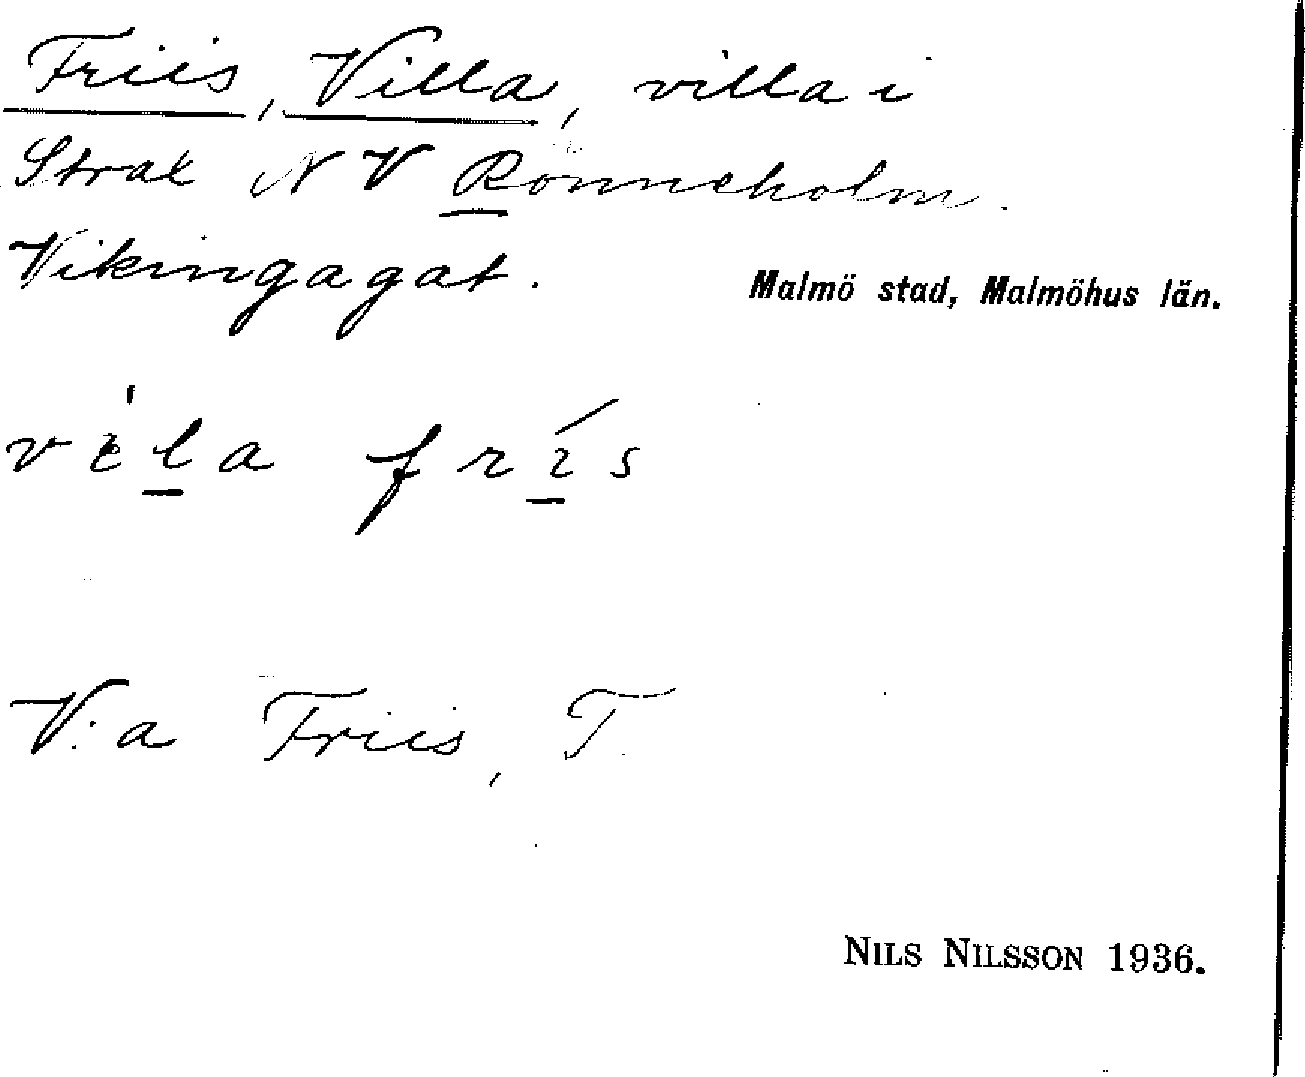 Friis, Villa, villa i
Strax N V Rönneholm.
Vikingagat.
Malmö stad, Malmöhus län.
vèla frís
V:a Friis, T.
NILS NILSSON 1936.